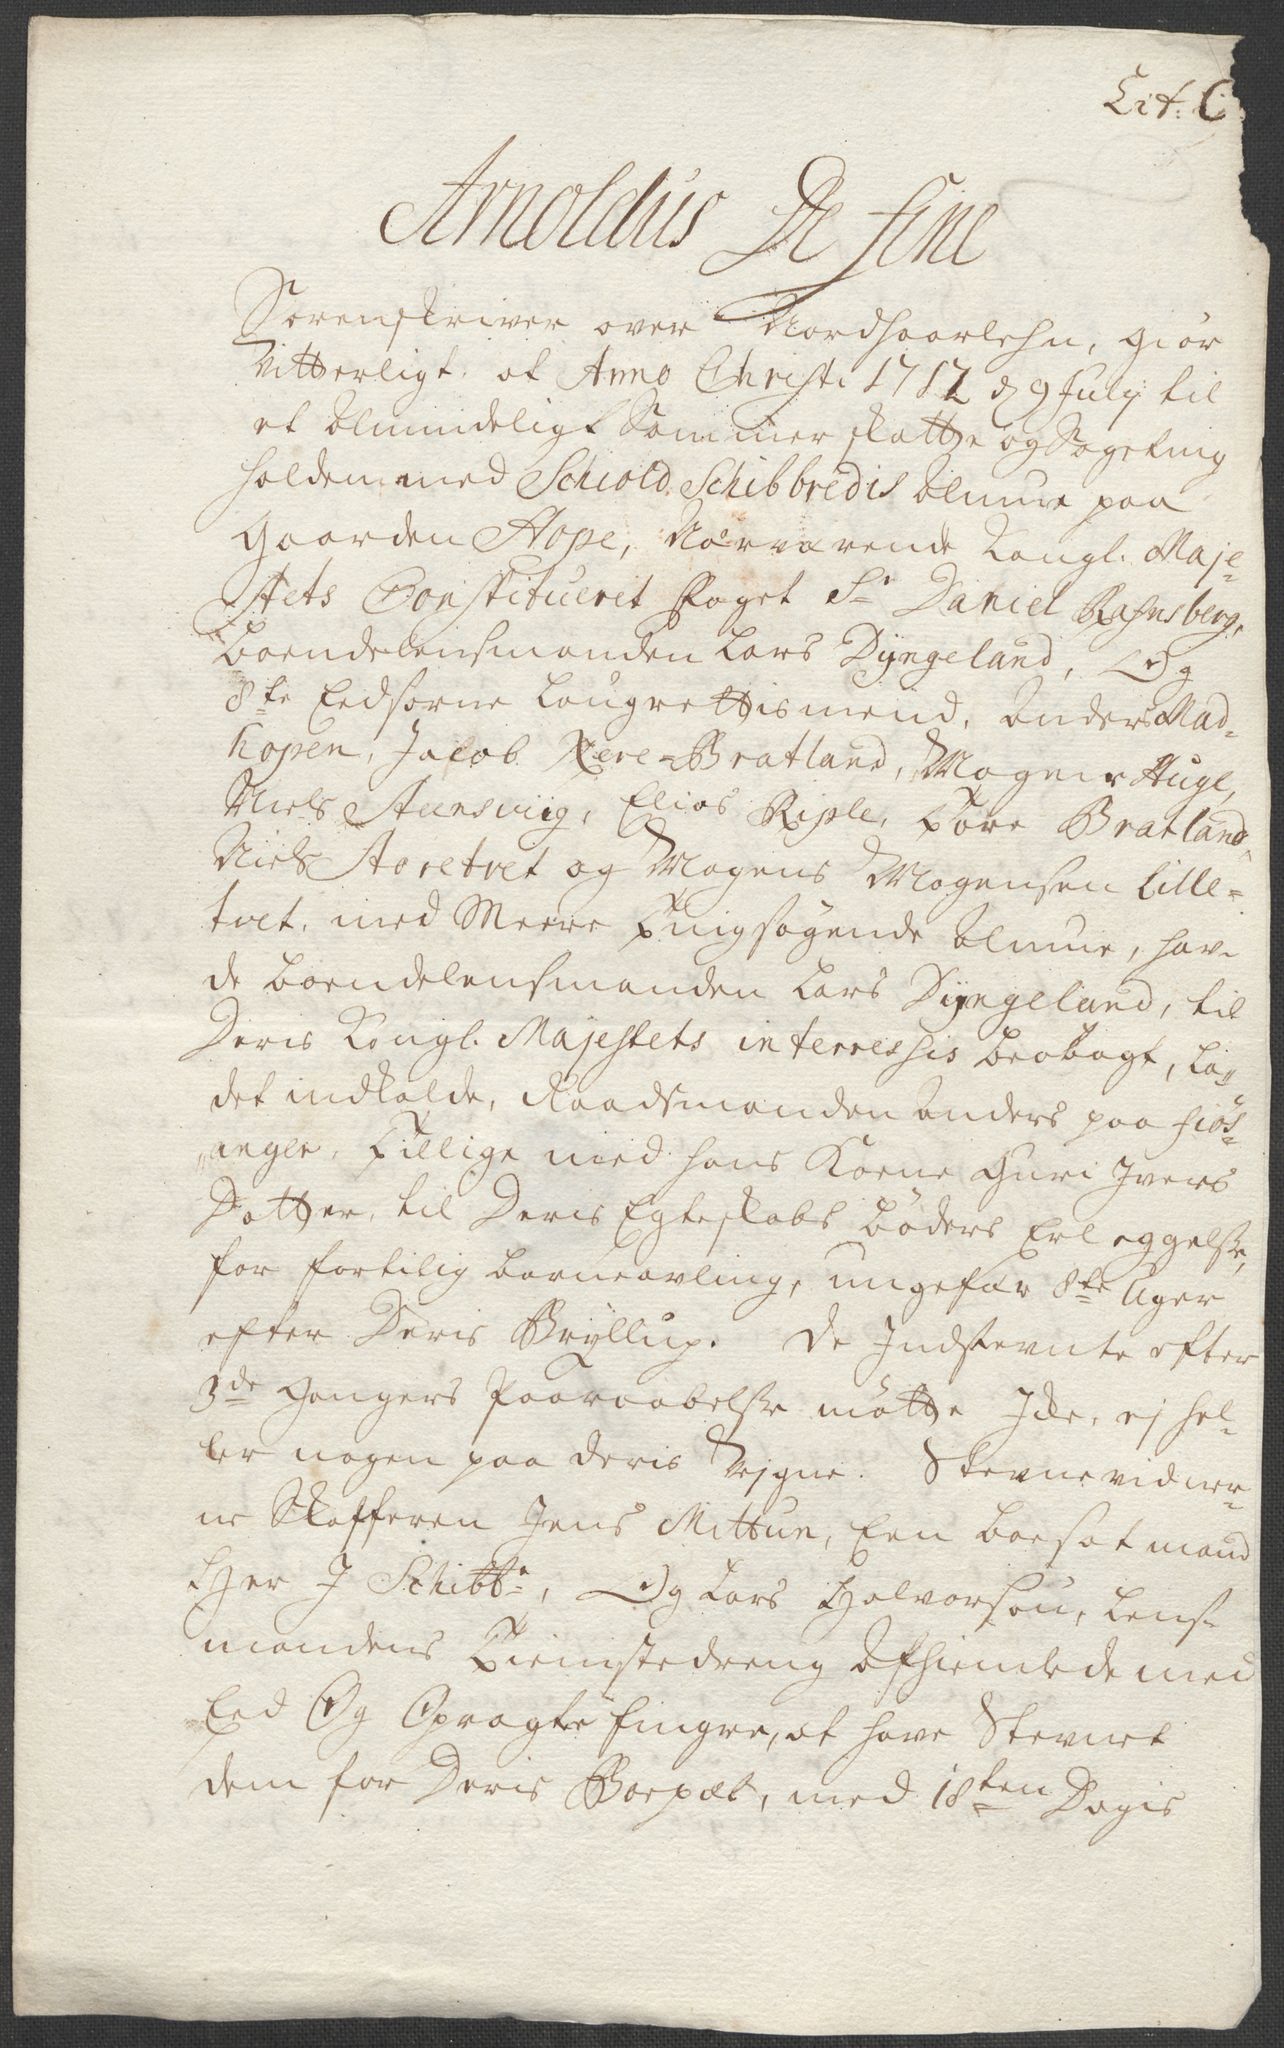 Lit: C
Arnoldus De fine
Sorenskriver over Nordhoorlehn, giør
Vitterligt at Anno Christi 1712 d 9 July til
et almindeligt Sommer skatte og Sageting
holden med Schiold Schibbredis almue paa
Gaarden Hope, Nærværende Kongl. Maje-
stets Constitueret Foget Sr Daniel Rafnsberg,
Bondelensmanden Lars Dyngeland, Og
8te Eedsorne Laugrettismend, Anders Mad-
hopen, Jacob Nere-Bratland, Mogens Huge,
Niels Steensviig, Elias Riple, Tore Bratland,
Niels Aaretvet og Mogens Mogensen Lille-
tvet, med Meere tingsøgende almue, hav-
de bondelensmanden Lars Dyngeland, til
Deris Kongl. Majestets interressis beobagt, la-
det indkalde, Raadsmanden Anders paa fiøs-
anger, Tillige med hans Kone Guri Ivers
Datter, til Deris Egteskabs bøders Erleggelse,
for fortilig barneavling, ungefær 8te Uger
efter Deris Bryllup. De Indstevnte efter
3de Gangers Paaraabelse møtte Icke, ej hel-
ler nogen paa deris Vegne. Stevnevidner-
ne Skafferen Jens Mittun, Een boesat mand
Her J Schibbr, Og Lars Halvorsøn, Lens-
mandens Tienstedreng afhiemlede med
Eed Og Opragte fingre, at have Stevnet
dem for Deris Boepæl, med 18ten Dagis